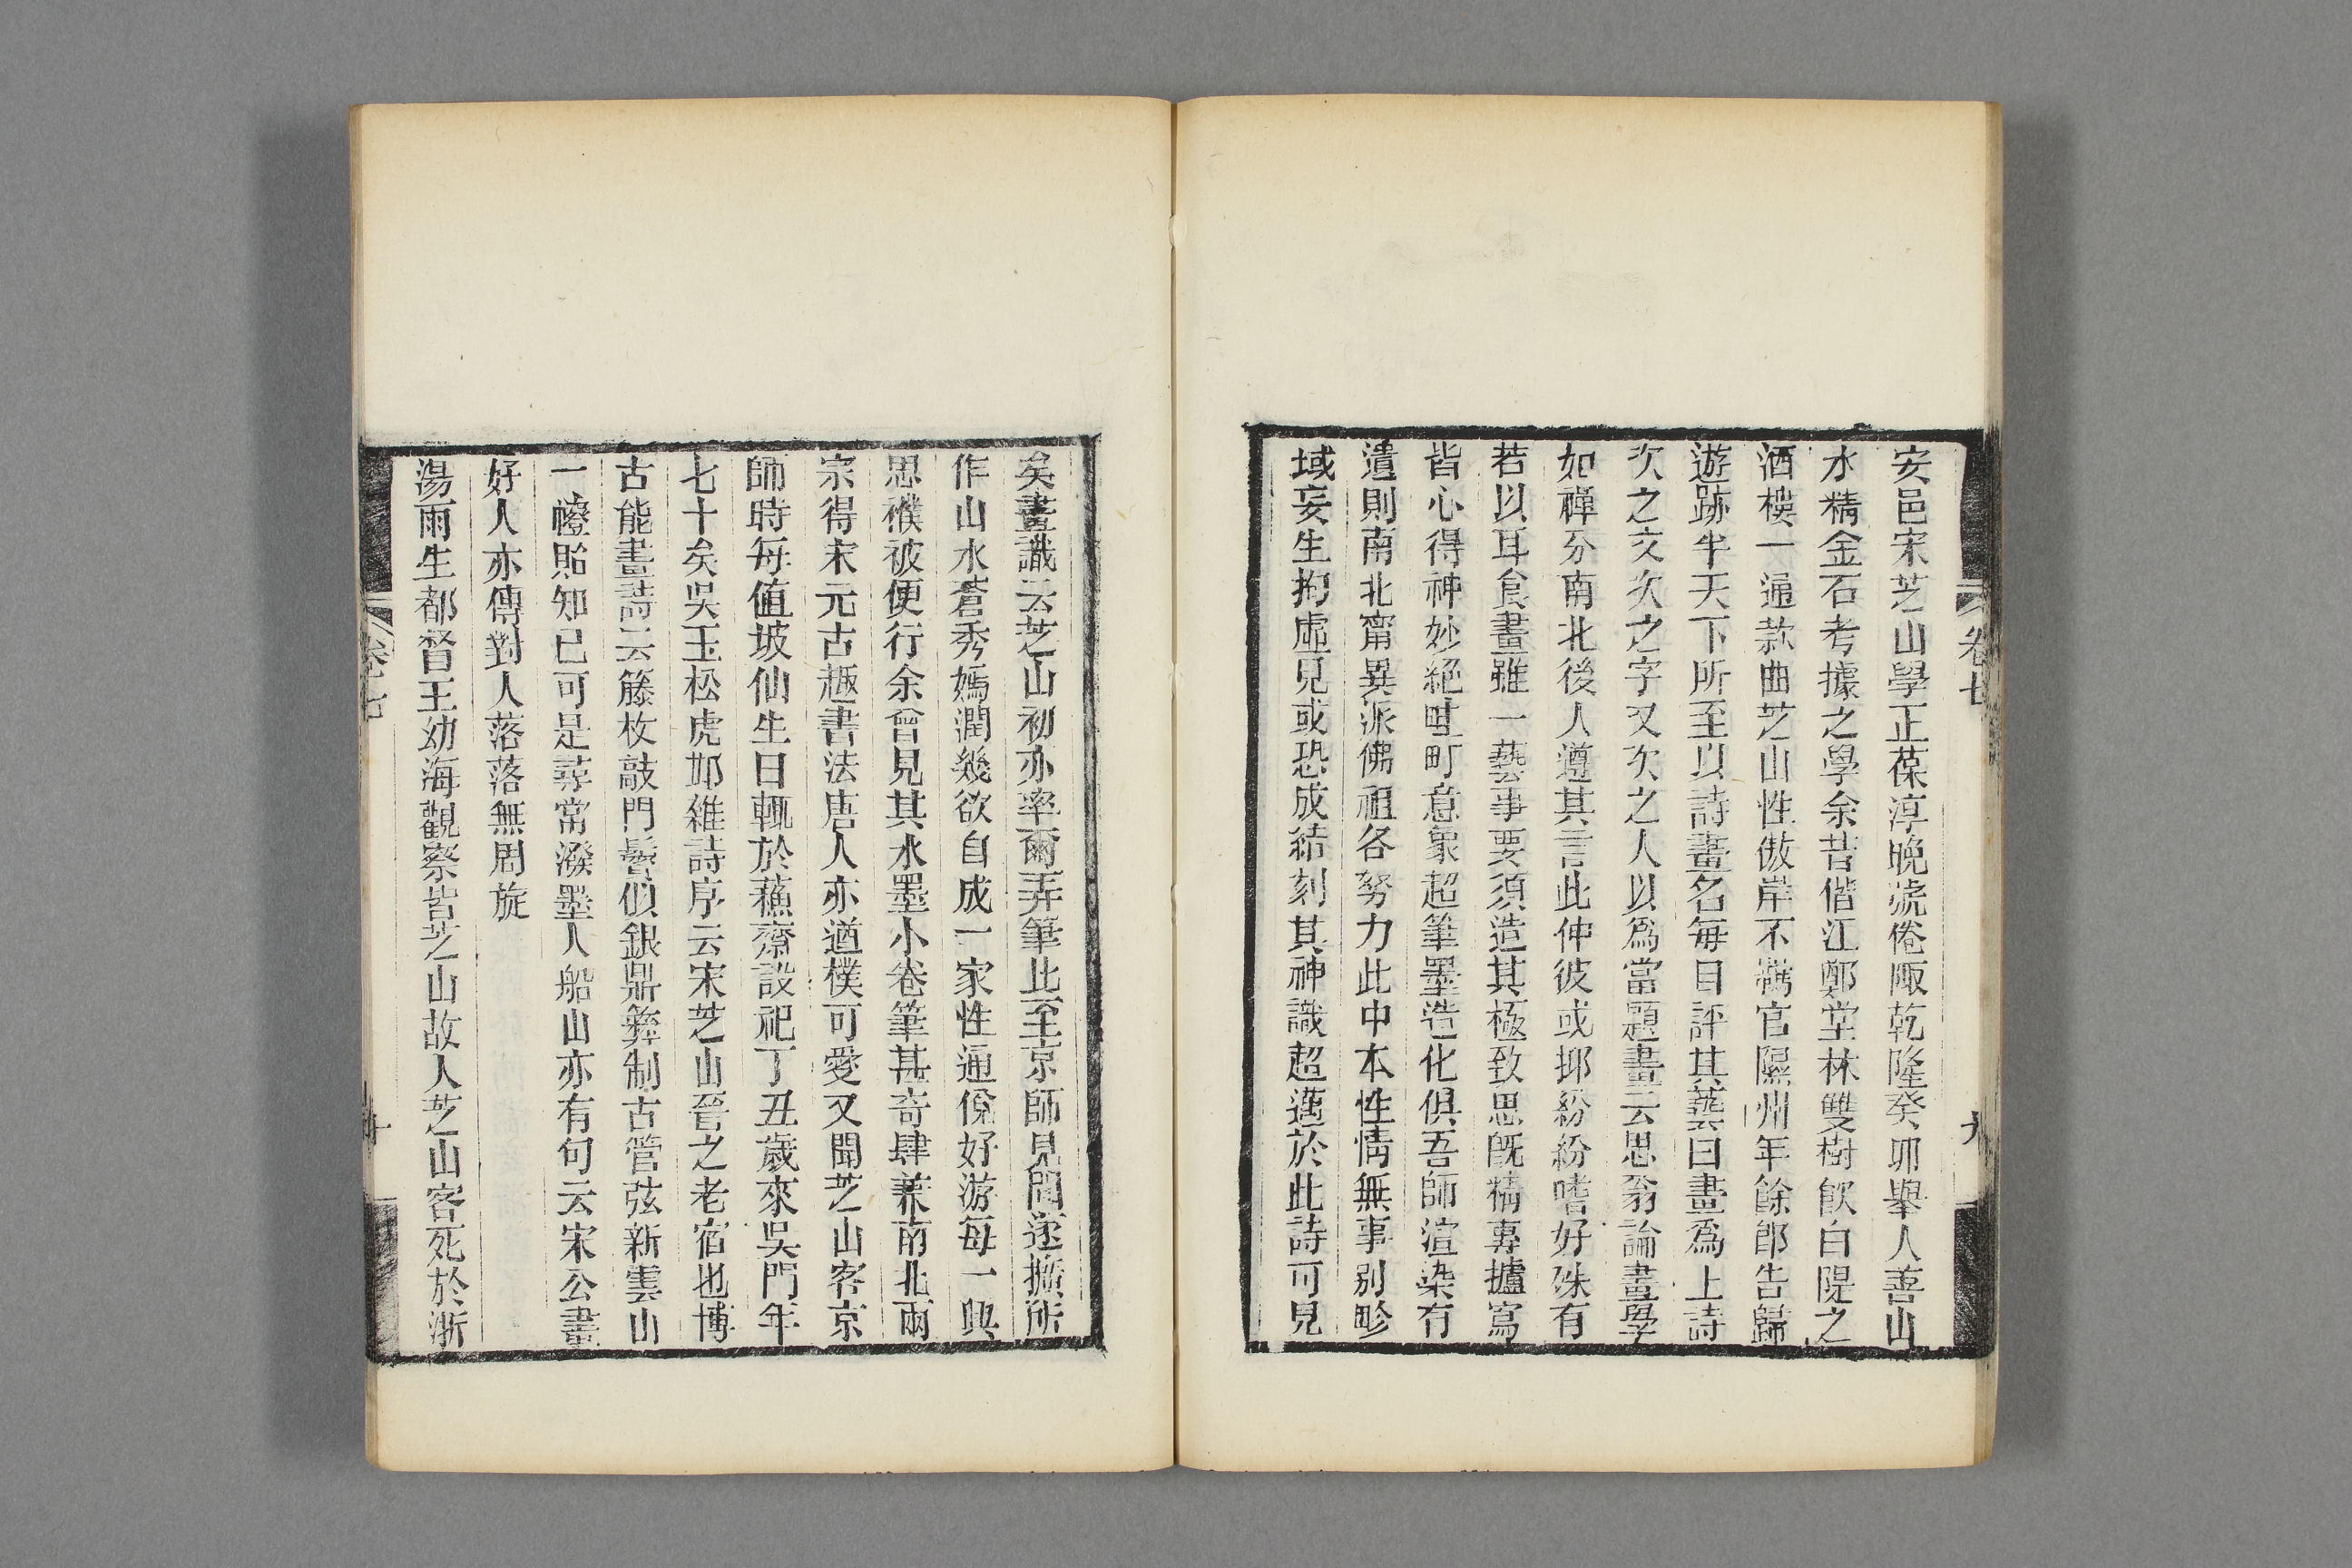 安邑宋芝山學正葆淳晚號倦陬乾隆癸卯舉人善山
水精金石考據之學余昔偕江鄭堂林雙樹飲白隄之
酒樓一通款曲芝山性傲岸不羈官隰州年餘卽告歸
遊跡半天下所至以詩畫名每自評其藝曰畫爲上詩
次之文次之字又次之人以爲當題畫云思翁論畫學
如禪分南北後人遵其言此仲彼或抑紛紛嗜好殊有
若以耳食畫雖一藝事要須造其極致思旣精專攄寫
皆心得神妙絕畦町意象超筆墨造化俱吾師渲染有
遺則南北甯異派佛祖各努力此中本性情無事别畛
域妄生拘虛見或恐成結刻其神識超邁於此詩可見
卷七
九
矣畫識云芝山初亦率爾弄筆此至京師見聞遂擴所
作山水蒼秀嫣潤幾欲自成一家性通侻好游每一興
思襆被便行余曾見其水墨小卷筆甚奇肆兼南北兩
宗得宋元古趣書法唐人亦遒樸可愛又聞芝山客京
師時每值坡仙生日輒於蘇齋設祀丁丑歲來吳門年
七十矣吳玉松虎邱雜詩序云宋芝山晉之老宿也博
古能畫詩云籐杖敲門鬢似銀鼎彝制古管弦新雲山
一幢貽知已可是尋常潑墨人船山亦有句云宋公畫
好人亦傳對人落落無周旋
湯雨生都督王幼海觀察皆芝山故人芝山客死於浙
卷七
十